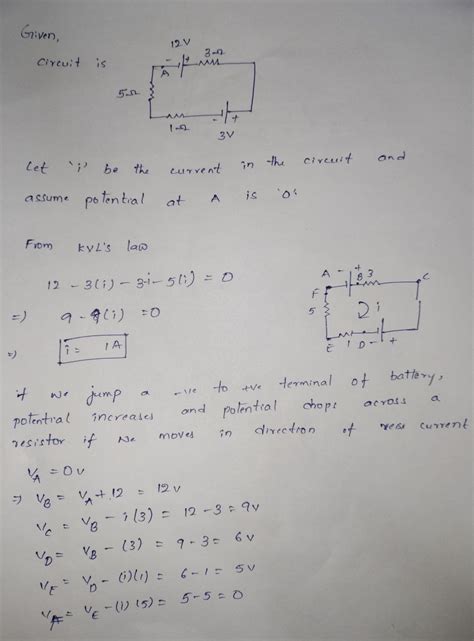 Given,
circuit is
12V
- +
3Ω
A
5Ω
1Ω
- +
3V
Let 'i' be the current in the circuit and
assume potential at A is '0'
From KVL's law
12 - 3(i) - 3 - i - 5(i) = 0
=) 9 - 9(i) = 0
=) i = 1A
A - + B 3 C
F
5
i
E 1 D - +
if we jump a -ve to +ve terminal of battery,
potential increases and potential drops across a
resistor if we moves in direction of current
VA = 0v
=> VB = VA + 12 = 12v
VC = VB - i(3) = 12 - 3 = 9v
VD = VB - (3) = 9 - 3 = 6v
VE = VD - (i)(1) = 6 - 1 = 5v
VF = VE - (1)(5) = 5 - 5 = 0